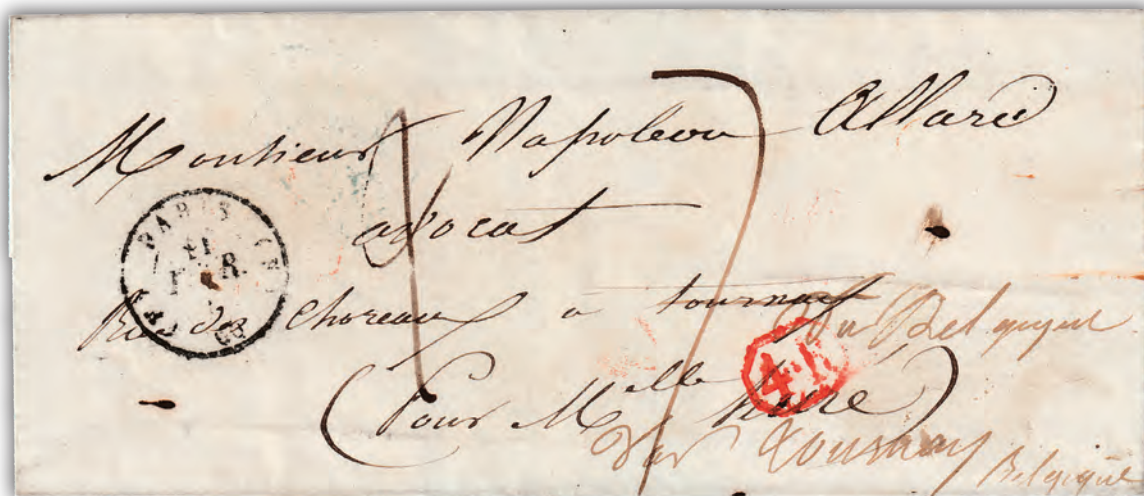 Monsieur Napoleon Allard
avocat
PARIS
FÉVR.
60
Rue des Choreaux a tournay
En Belgique
4.R
(Pour Melle huré)
par tournay
Belgique